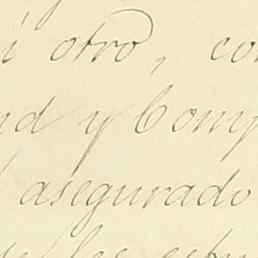 otro, co
nd y Comp
asegurado